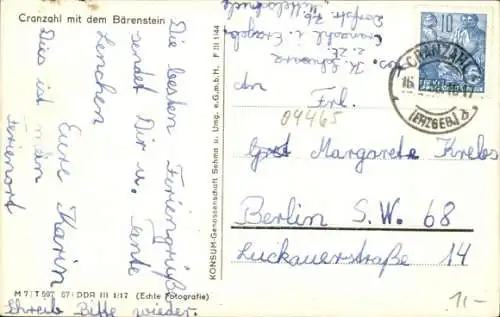 Cranzahl mit dem Bärenstein
Die besten Feriengrüße
sendet Dir u. Tante
Lenchen
Eure Karin
Dies ist mein
Ferienort
Schreib Bitte wieder.
M 7/T 597 57/DDR III 1/17 (Echte Fotografie)
KONSUM-Genossenschaft Sehma u. Umg. e.G.m.b.H. F III 1144
K. Schwarz
z. Zt.
Cranzahl i. Erzgeb.
Dorfstr. 76
10
CRANZAHL
(ERZGEB)
An
Frl.
04465
Margarete Krebs
Berlin S.W. 68
Luckauerstraße 14
1,-